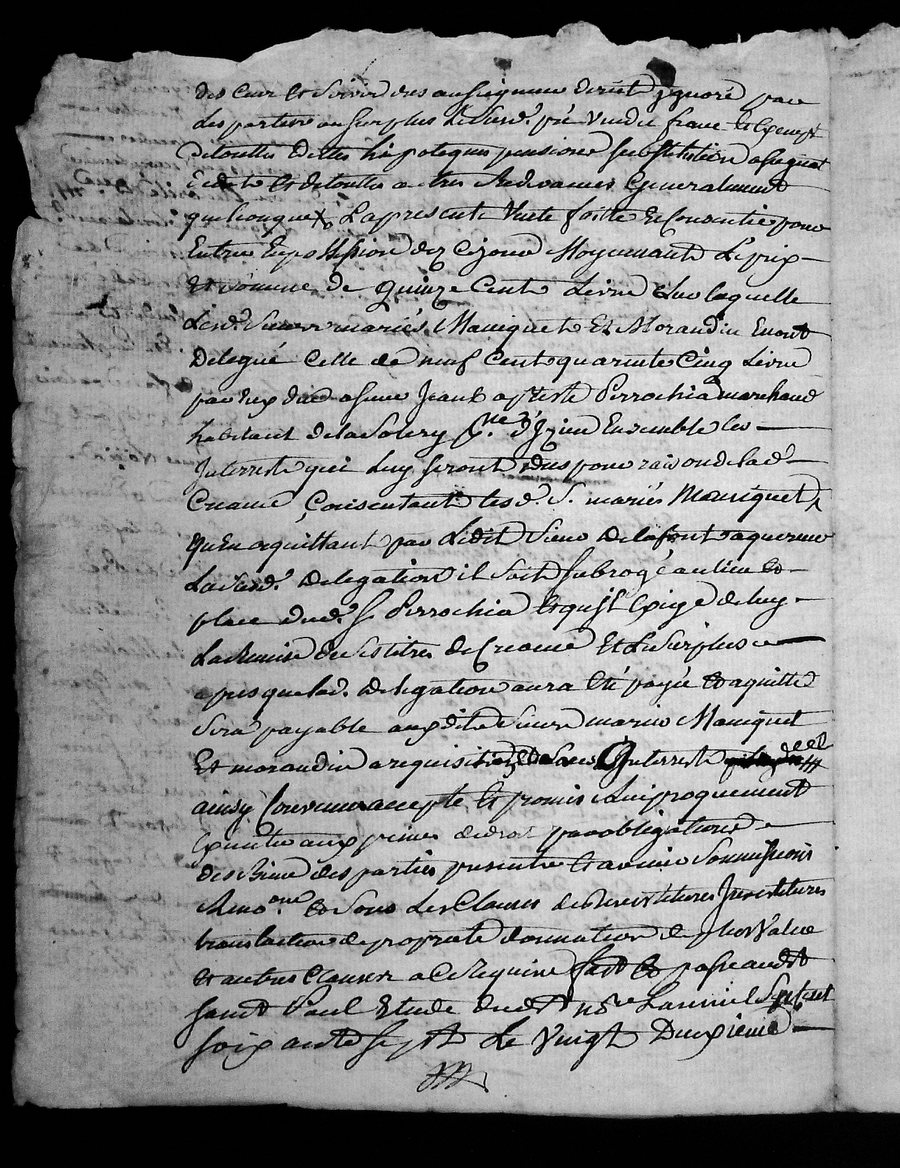 des cens et servis des au seigneur direct jgnoré par
Les parties au surplus Lesusd.t pré vendu franc et Exempt
de touttes dettes hipoteques pensions substitution
Et de touttes autres Redevances Generalement
quelconque La presente Vente faitte et Consentie pour
Entrer En possession dez cejour Moyennant Leprix
et somme de quinze Cent Livre sur laquelle
Lesd. sieurs mariés Maniquet Et Morandin Enont
Delegué Celle de neuf Cent quarante Cinq Livre
par Eux due a sieur Jean Baptiste Perrochia marchand
habitant de la Ensemble les
Interrest qui Luy seront dus pour raison de lad.
Creance Consentant lesd. S. mariés Maniquet
qu'En aquittant par Ledit Sieur Delafont aquereur
La susd. Delegation il soit subrogé au lieu et
place dud. S. Perrochia et qu'il Exige de luy
La Remise des titres de Creance Et Le Surplus
apres que lad. Delegation aura Eté payée et aquittée
sera payable auxdits Sieurs mariés Maniquet
Et morandin a requisition Interrest
ainsy Convenu accepté Et promis Reciproquement
Executer aux peines de droit par obligations
des Biens des parties presents et avenir Soummissions
Reno.ons et Sous Les Clauses de Devestitures Jnvestitures
translation de proprieté donnation de plus Value
et autres Clauses a ce Requises fait et passé audit
saint Paul Etude dud. No.re Lan mil Sept cent
soixante sept Le Vingt Deuxieme